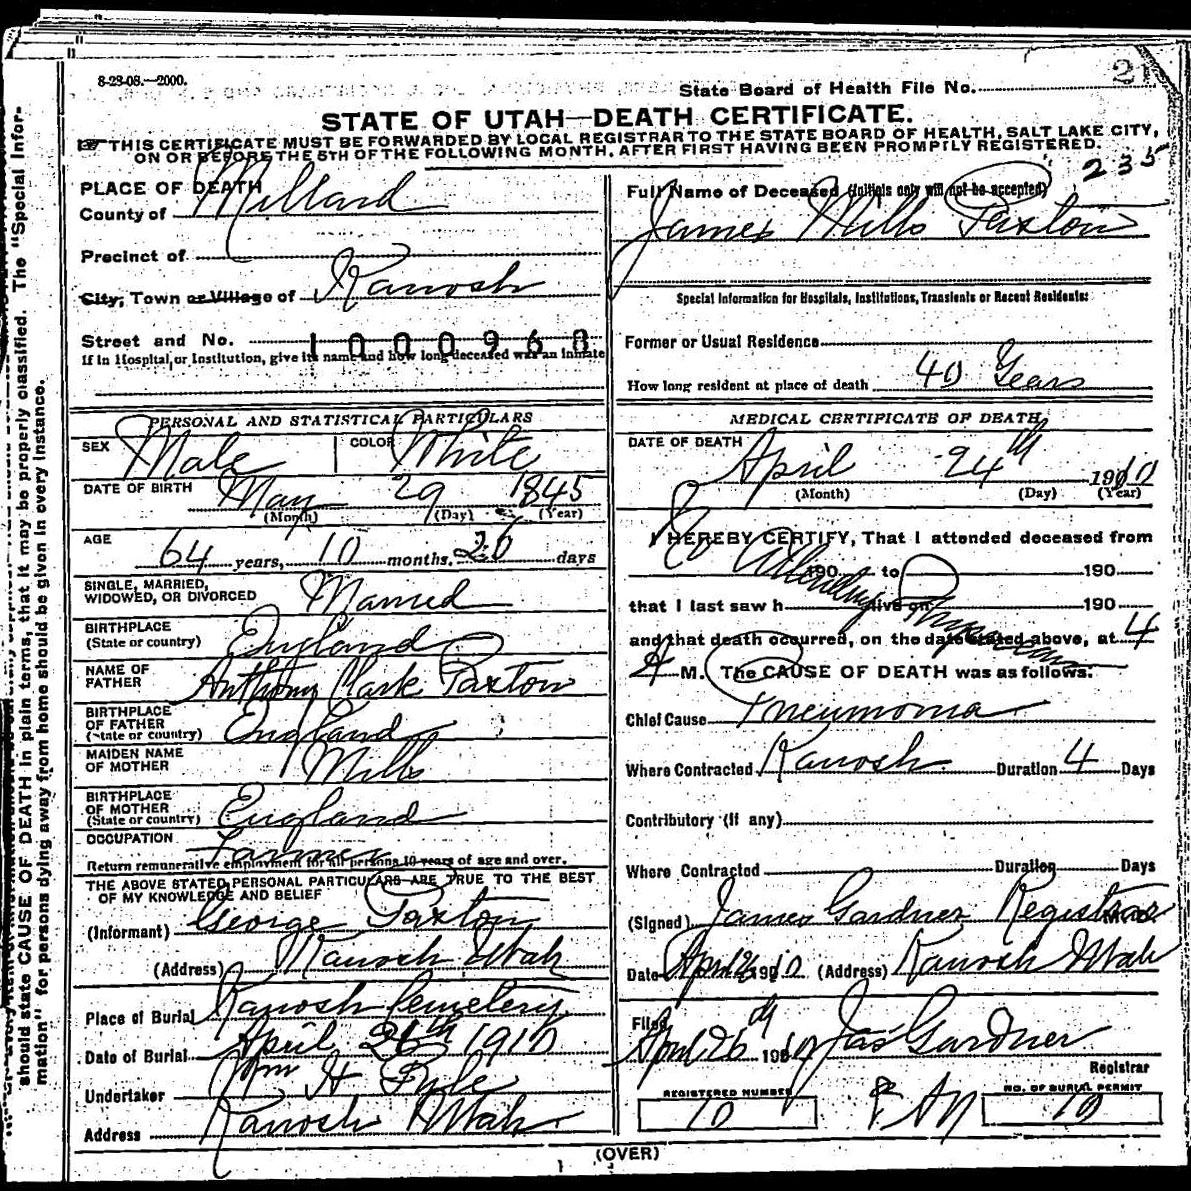 8-23-08.—2000.
21
State Board of Health File No.
STATE OF UTAH—DEATH CERTIFICATE.
THIS CERTIFICATE MUST BE FORWARDED BY LOCAL REGISTRAR TO THE STATE BOARD OF HEALTH, SALT LAKE CITY,
ON OR BEFORE THE 5TH OF THE FOLLOWING MONTH, AFTER FIRST HAVING BEEN PROMPTLY REGISTERED.
235
PLACE OF DEATH
County of Millard
Precinct of
City, Town or Village of Kanosh
Street and No. 1000968
If in Hospital, or Institution, give its name and how long deceased was an inmate
Full Name of Deceased (Initials only will not be accepted)
James Mills Paxton
Special Information for Hospitals, Institutions, Transients or Recent Residents:
Former or Usual Residence
How long resident at place of death 40 Years
PERSONAL AND STATISTICAL PARTICULARS
SEX Male COLOR White
DATE OF BIRTH May 29 1845
(Month) (Day) (Year)
AGE 64 years, 10 months. 26 days
SINGLE, MARRIED,
WIDOWED, OR DIVORCED Married
BIRTHPLACE
(State or country) England
NAME OF
FATHER Anthony Clark Paxton
BIRTHPLACE
OF FATHER
(State or country) England
MAIDEN NAME
OF MOTHER Mills
BIRTHPLACE
OF MOTHER
(State or country) England
OCCUPATION Farmer
Return remunerative employment for all persons 10 years of age and over.
THE ABOVE STATED PERSONAL PARTICULARS ARE TRUE TO THE BEST
OF MY KNOWLEDGE AND BELIEF
(Informant) George Paxton
(Address) Kanosh Utah
Place of Burial Kanosh Cemetery
Date of Burial April 26th 1910
Undertaker Jom H Pyle
Address Kanosh Utah
MEDICAL CERTIFICATE OF DEATH
DATE OF DEATH April 24th 1910
(Month) (Day) (Year)
I HEREBY CERTIFY, That I attended deceased from
190 to 190
No Attending Physician
that I last saw h alive on 190
and that death occurred, on the date stated above, at 4
A M. The CAUSE OF DEATH was as follows:
Chief Cause Pneumonia
Where Contracted Kanosh Duration 4 Days
Contributory (If any)
Where Contracted Duration Days
(Signed) James Gardner Registrar
Date April 26 1910 (Address) Kanosh Utah
Filed
April 26 1910 Jas Gardner
Registrar
REGISTERED NUMBER NO. OF BURIAL PERMIT
10 10
(OVER)
should state CAUSE OF DEATH in plain terms, that it may be properly classified. The "Special Infor-
mation" for persons dying away from home should be given in every instance.